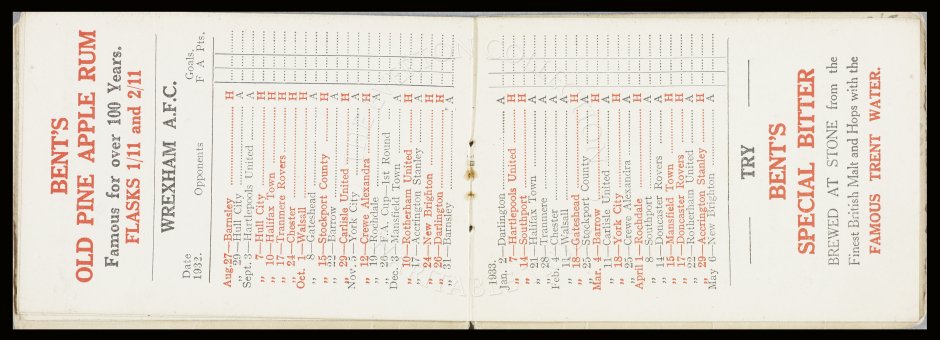 BENT'S
OLD PINE APPLE RUM
Famous for over 100 Years.
FLASKS 1/11 and 2/11
WREXHAM A.F.C.
Date Goals.
1932. Opponents F A Pts.
Aug. 27—Barnsley H
„ 29—Hull City A
Sept. 3—Hartlepools United A
„ 7—Hull City H
„ 10—Halifax Town H
„ 17—Tranmere Rovers H
„ 24—Chester H
Oct. 1—Walsall H
„ 8—Gateshead A
„ 15—Stockport County H
„ 22—Barrow A
„ 29—Carlisle United H
Nov. 5—York City A
„ 12—Crewe Alexandra H
„ 19—Rochdale A
„ 26—F.A. Cup—1st Round
Dec. 3—Mansfield Town A
„ 10—Rotherham United H
„ 17—Accrington Stanley A
„ 24—New Brighton H
„ 26—Darlington H
„ 31—Barnsley A
1933.
Jan. 2—Darlington A
„ 7—Hartlepools United H
„ 14—Southport H
„ 21—Halifax Town A
„ 28—Tranmere A
Feb. 4—Chester A
„ 11—Walsall A
„ 18—Gateshead H
„ 25—Stockport County A
Mar. 4—Barrow H
„ 11—Carlisle United A
„ 18—York City H
„ 25—Crewe Alexandra A
April 1—Rochdale H
„ 8—Southport A
„ 14—Doncaster Rovers A
„ 15—Mansfield Town H
„ 17—Doncaster Rovers H
„ 22—Rotherham United A
„ 29—Accrington Stanley H
May 6—New Brighton A
TRY
BENT'S
SPECIAL BITTER
BREWED AT STONE from the
Finest British Malt and Hops with the
FAMOUS TRENT WATER.